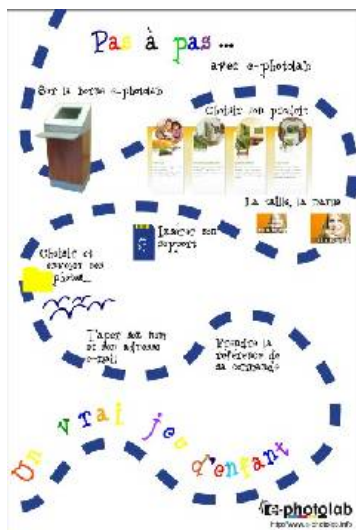 Pas à pas...
avec e-photolab
Sur la borne e-photolab
Choisir son produit
La taille, la marge
Insérer son
support
Choisir et
envoyer ses
photos...
Taper son nom
et son adresse
e-mail
Prendre la
référence de
sa commande
Un vrai jeu d'enfant
e-photolab